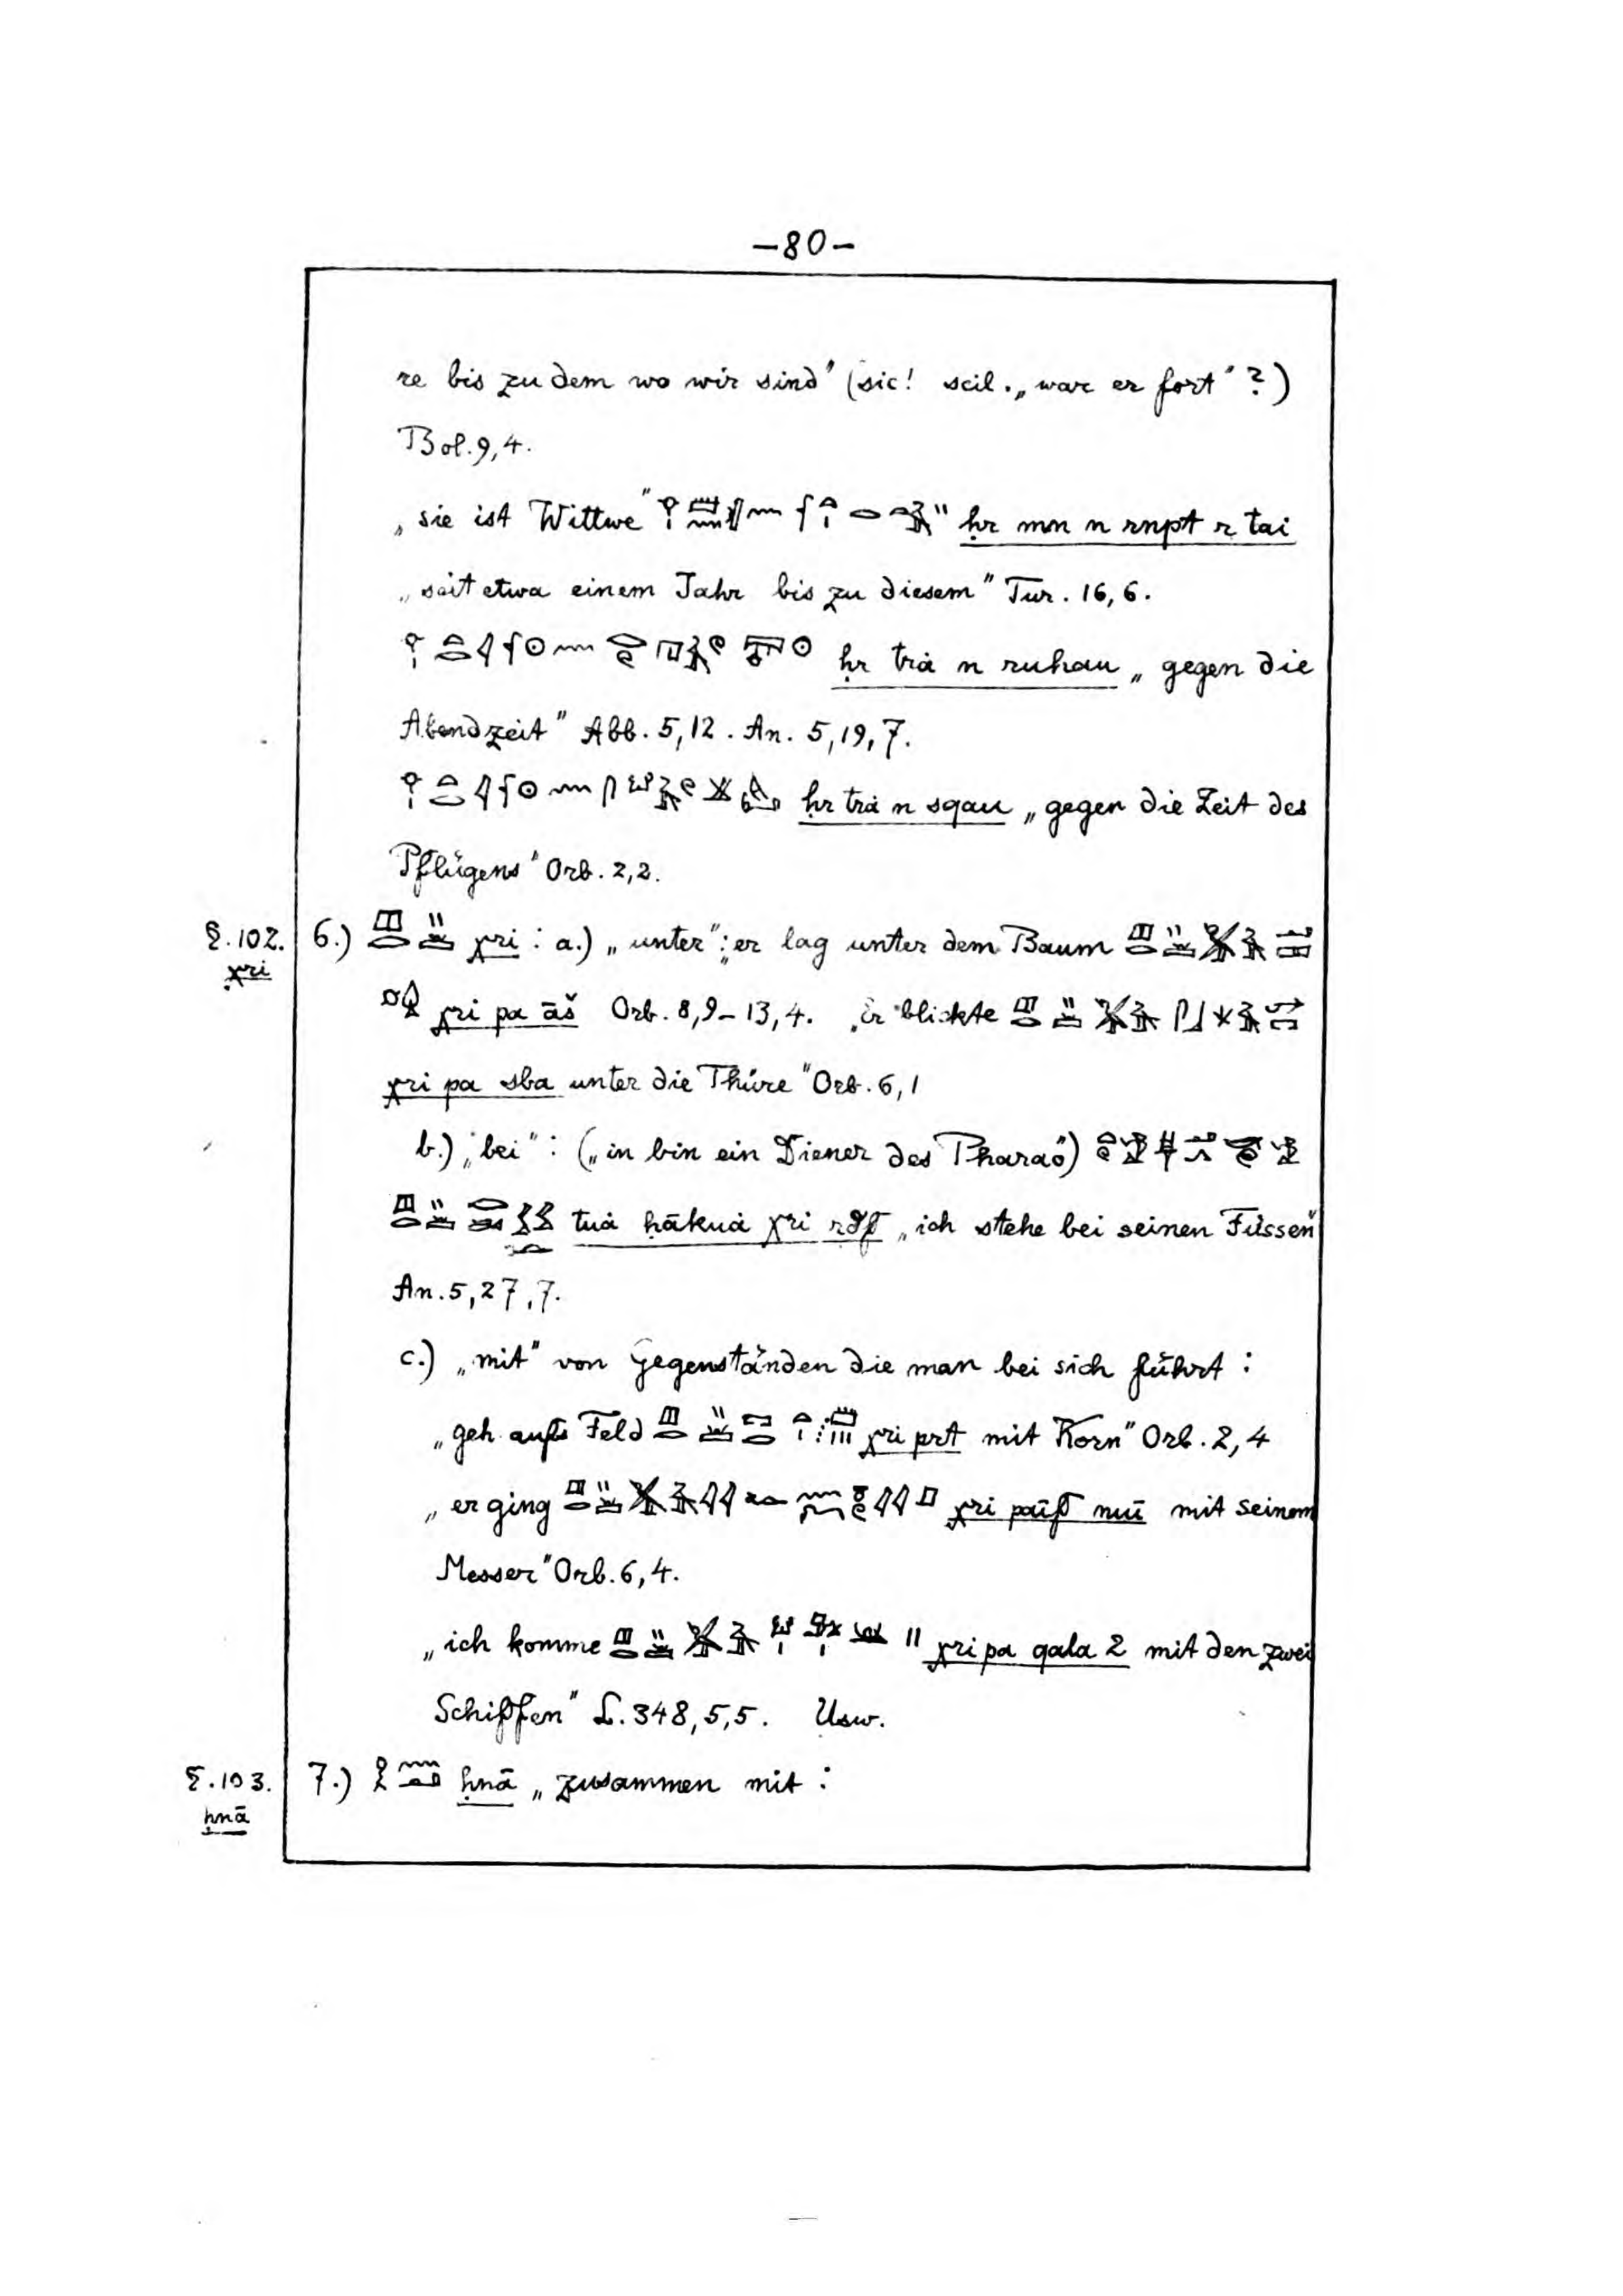 —80—
re bis zu dem wo wir sind" (sic! scil. „war er fort"?)
Bol. 9,4.
„sie ist Wittwe" ḥr mn n rnpt r tai
„seit etwa einem Jahr bis zu diesem" Tur. 16,6.
ḥr trȧ n ruhau „gegen die
Abendzeit" Abb. 5,12. An. 5,19,7.
ḥr trȧ n sqau „gegen die Zeit des
Pflügens" Orb. 2,2.
§.102. 6.) χri : a.) „unter": „er lag unter dem Baum
χri
χri pa āš Orb. 8,9–13,4. „Er blickte
χri pa sba unter die Thüre" Orb. 6,1
b.) „bei": („in bin ein Diener des Pharao")
tuȧ ḥākuȧ χri rdf „ich stehe bei seinen Füssen"
An. 5,27,7.
c.) „mit" von Gegenständen die man bei sich führt:
„geh aufs Feld χri prt mit Korn" Orb. 2,4
„er ging χri paīf nuī mit seinem
Messer" Orb. 6,4.
„ich komme χri pa qala 2 mit den zwei
Schiffen" L. 348,5,5. Usw.
§.103. 7.) ḥnā „zusammen mit:
ḥnā